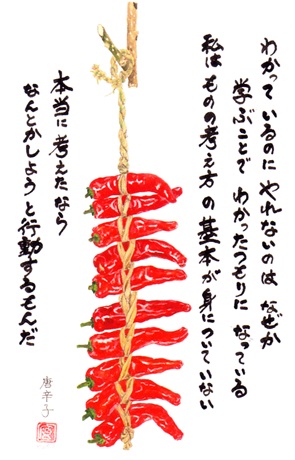 わかっているのに やれないのは なぜか
学ぶことで わかったつもりに なっている
私は ものの考え方の基本が身についていない
本当に 考えたなら
なんとかしよう と行動するもんだ
唐辛子